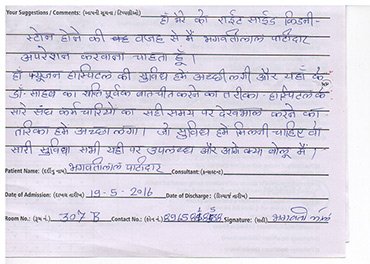 Your Suggestions / Comments: (આપની સૂચના / ટિપ્પણીઓ)
हाँ मेरे को राईट साईड किडनी-
स्टोन होने की वजह से मैं भगवतीलाल पाटीदार
अपरेशन करवाना चाहता हूँ।
हाँ फ्यूजन हास्पिटल की सुविधा हमे अच्छी लगी और यहाँ के
डॉ. साहब का शांति पूर्वक बातचीत करने का तरीका - हास्पिटल के
सारे संघ कर्मचारियो का सही समय पर देखभाल करने का
तरिका हमे अच्छा लगा। जो सुविधा हमे मिलनी चाहिए वो
सारी सुविधा सभी यही पर उपलब्ध और आगे क्या बोलू मैं।
Patient Name: (દર્દીનું નામ) भगवतीलाल पाटीदार Consultant: (કન્સલ્ટન્ટ)
Date of Admission: (દાખલ તારીખ) 19-5-2016 Date of Discharge: (ડિસ્ચાર્જ તારીખ)
Room No.: (રૂમ નં.) 307 B Contact No.: (ફોન નં.) Signature: (સહી)